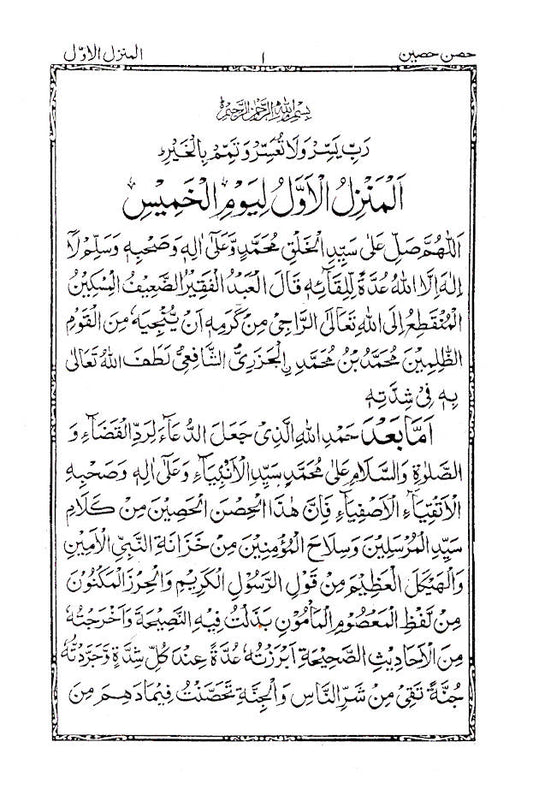 حصن حصین ١ المنزل الاوّل
بِسْمِ اللهِ الرَّحْمٰنِ الرَّحِيْمِ
رَبِّ يَسِّرْ وَلَا تُعَسِّرْ وَتَمِّمْ بِالْخَيْرِ
اَلْمَنْزِلُ الْاَوَّلُ لِيَوْمِ الْخَمِيْسِ
اَللّٰهُمَّ صَلِّ عَلٰى سَيِّدِ الْخَلْقِ مُحَمَّدٍ وَّعَلٰى اٰلِهٖ وَصَحْبِهٖ وَسَلِّمْ لَا
اِلٰهَ اِلَّا اللهُ عُدَّةٌ لِّلِقَائِهٖ قَالَ الْعَبْدُ الْفَقِيْرُ الضَّعِيْفُ الْمِسْكِيْنُ
الْمُنْقَطِعُ اِلَى اللهِ تَعَالَى الرَّاجِيْ مِنْ كَرَمِهٖ اَنْ يُّنْجِيَهٗ مِنَ الْقَوْمِ
الظّٰلِمِيْنَ مُحَمَّدُ بْنُ مُحَمَّدِ ࣙالْجَزَرِيُّ الشَّافِعِيُّ لَطَفَ اللهُ تَعَالٰى
بِهٖ فِيْ شِدَّتِهٖ
اَمَّا بَعْدَ حَمْدِ اللهِ الَّذِيْ جَعَلَ الدُّعَاءَ لِرَدِّ الْقَضَاءِ وَ
الصَّلٰوةِ وَالسَّلَامِ عَلٰى مُحَمَّدٍ سَيِّدِ الْاَنْبِيَاءِ وَعَلٰى اٰلِهٖ وَصَحْبِهِ
الْاَتْقِيَاءِ الْاَصْفِيَاءِ فَاِنَّ هٰذَا الْحِصْنَ الْحَصِيْنَ مِنْ كَلَامِ
سَيِّدِ الْمُرْسَلِيْنَ وَسِلَاحَ الْمُؤْمِنِيْنَ مِنْ خَزَانَةِ النَّبِيِّ الْاَمِيْنِ
وَالْهَيْكَلَ الْعَظِيْمَ مِنْ قَوْلِ الرَّسُوْلِ الْكَرِيْمِ وَالْحِرْزَ الْمَكْنُوْنَ
مِنْ لَفْظِ الْمَعْصُوْمِ الْمَأْمُوْنِ بَذَلْتُ فِيْهِ النَّصِيْحَةَ وَاَخْرَجْتُهٗ
مِنَ الْاَحَادِيْثِ الصَّحِيْحَةِ اَبْرَزْتُهٗ عُدَّةً عِنْدَ كُلِّ شِدَّةٍ وَّجَرَّدْتُهٗ
جُنَّةً تَقِيْ مِنْ شَرِّ النَّاسِ وَالْجِنَّةِ تَحَصَّنْتُ فِيْمَا دَهِمَ مِنَ